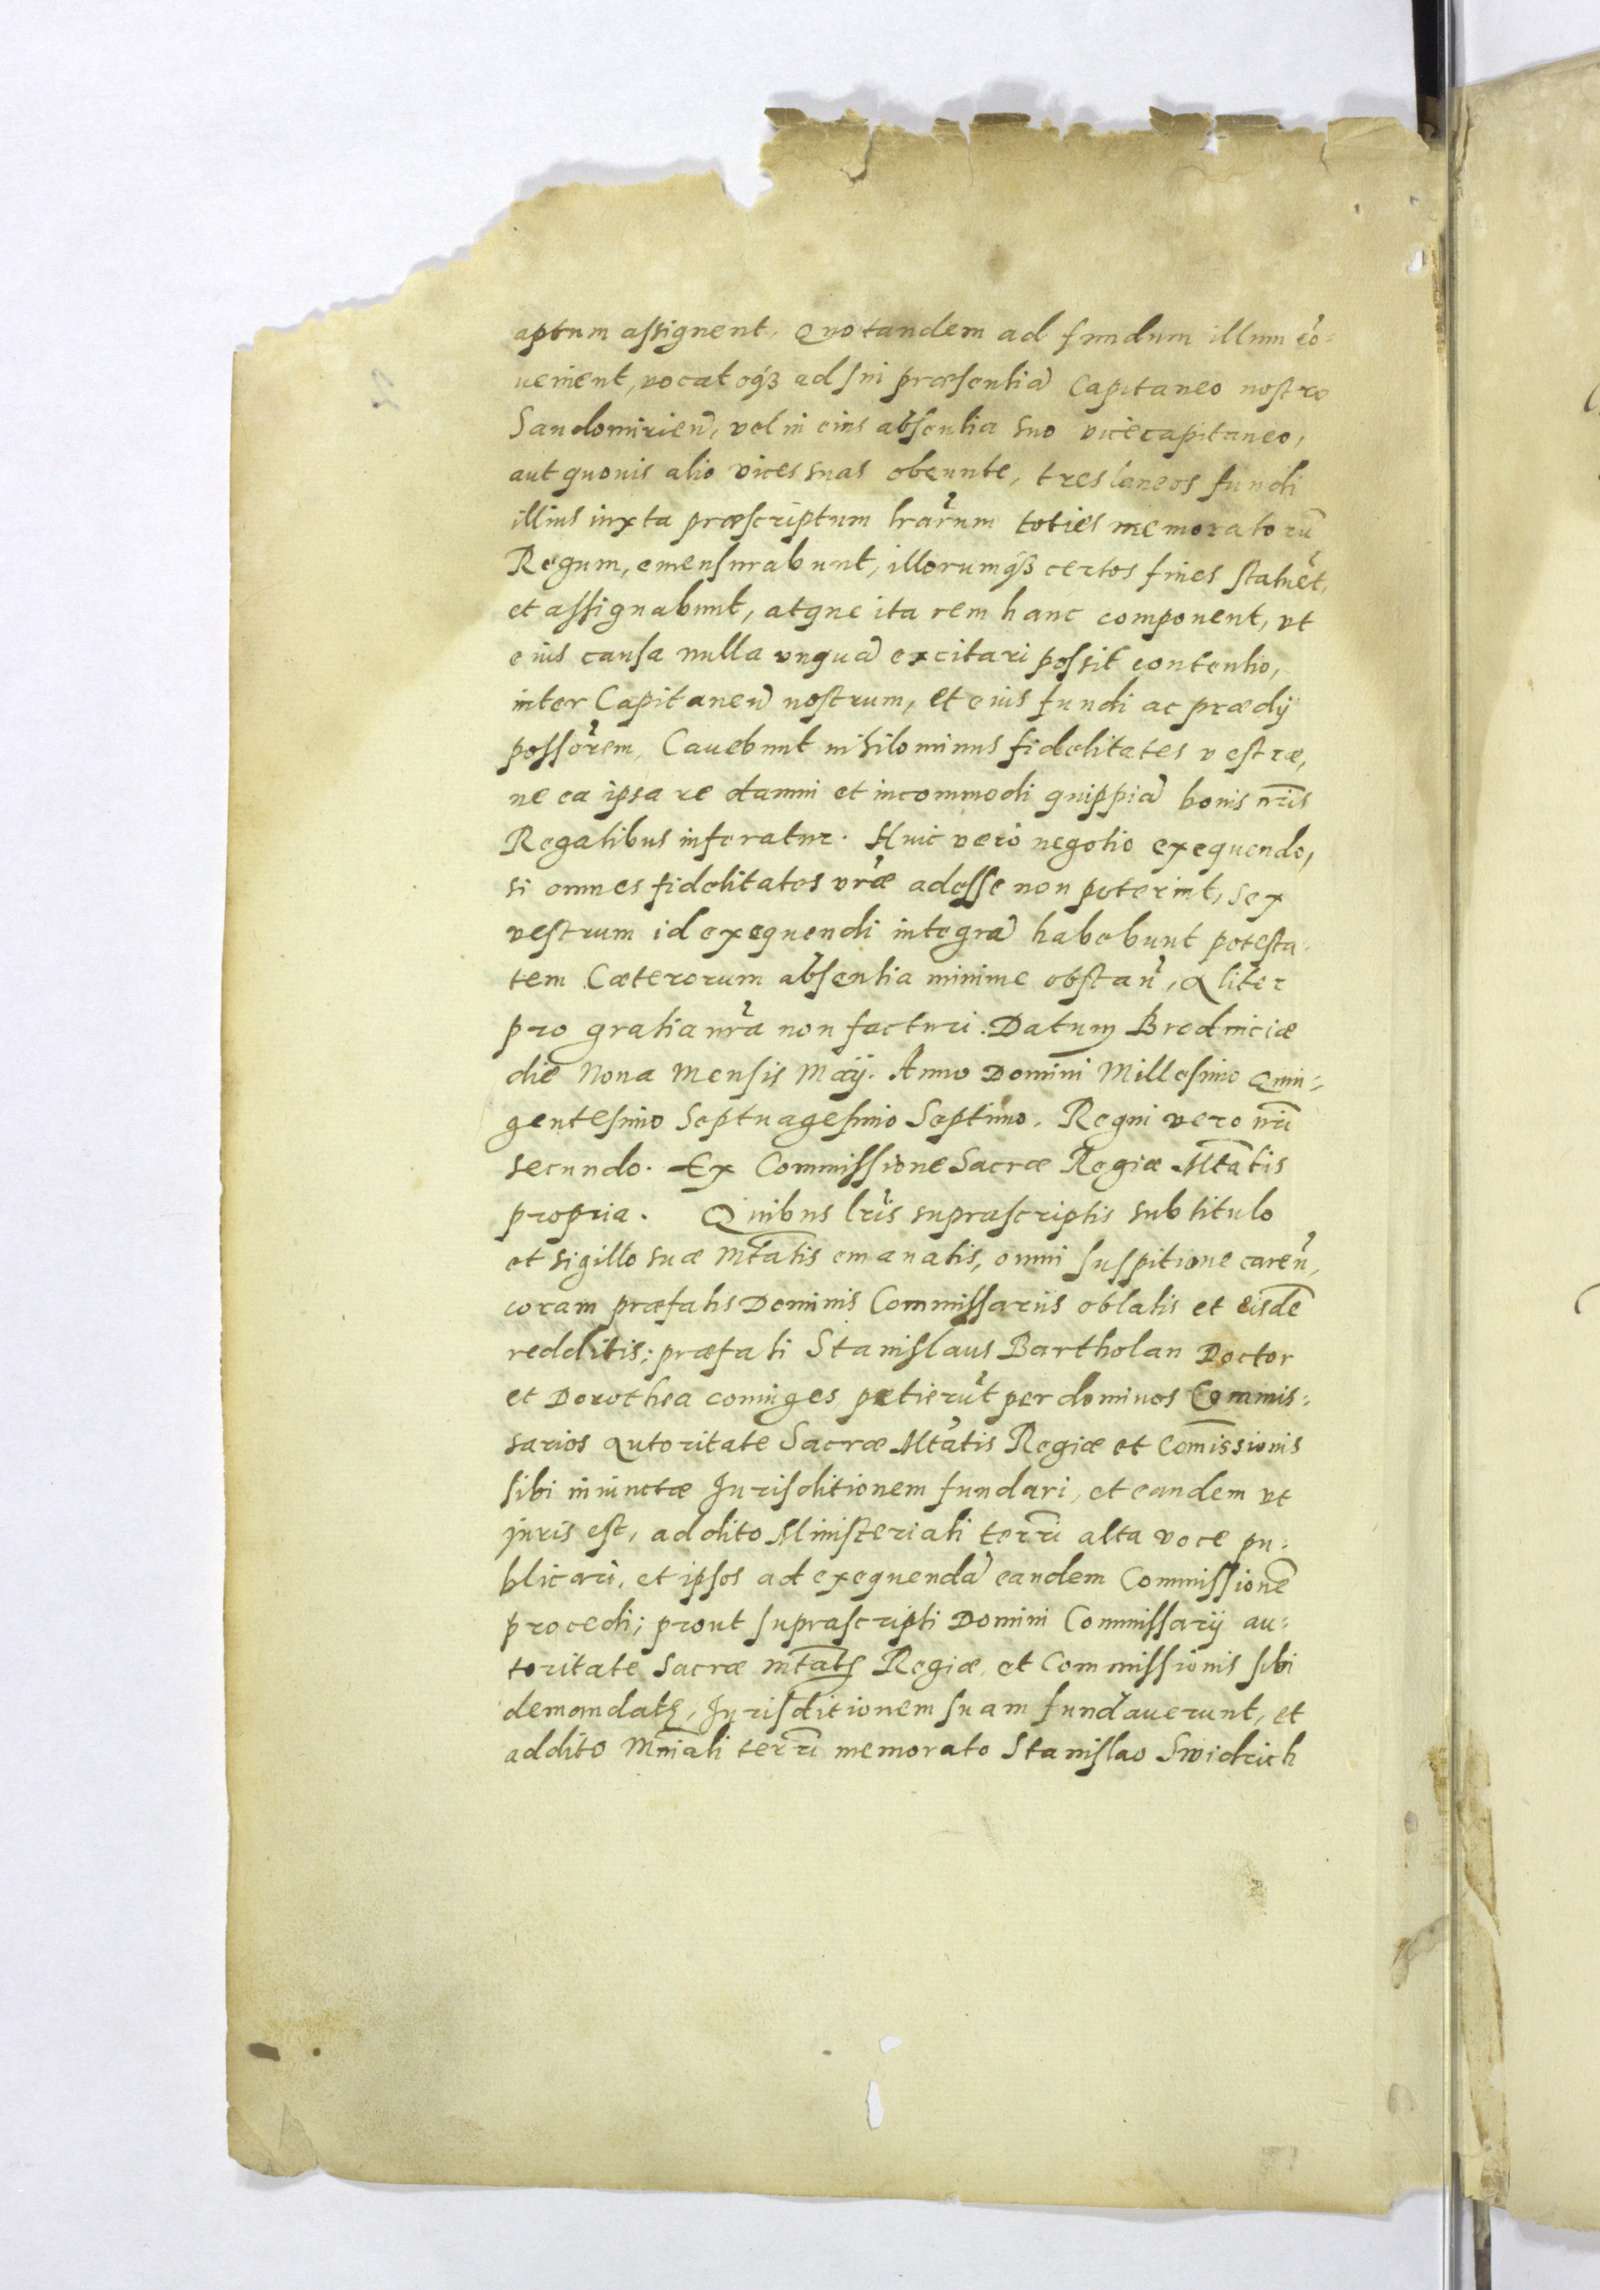 aptum assignent, Quo tandem ad fundum illum cō-
uenient, vocatoq3 ad sui præsentiā Capitaneo nostro
Sandomirien̄, vel in eius absentia suo vicecapitaneo,
aut quouis alio vices suas obeunte, tres laneos fundi
illius iuxta præscriptum lrārum toties memoratorū
Regum, emensurabunt, illorumq3 certos fines statuēt,
et assignabunt, atque ita rem hanc component, vt
eius causa nulla vnquā excitari possit contentio,
inter Capitaneū nostrum, et eius fundi ac prædij
possōrem, Cauebunt nihilominus fidelitates vestræ,
ne ea ipsa re damni et incommodi quippiā bonis nr̄is
Regalibus inferatur. Huic vero negotio exequendo,
si omnes fidelitates vr̄æ adesse non poterint, sex
vestrum id exequendi integrā habebunt potesta-
tem Cæterorum absentia minime obstan̄, Aliter
pro gratia nr̄a non facturi. Datum Brodniciæ
die Nona Mensis Maij. Anno Domini Millesimo Quin-
gentesimo Septuagesimo Septimo. Regni vero nr̄i
secundo. Ex Commissione Sacræ Regiæ Mtātis
propria. Quibus lrīs suprascriptis sub titulo
et sigillo suæ Mtātis emanatis, omni suspitione caren̄,
coram præfatis Dominis Commissariis oblatis et eisdē
redditis; præfati Stanislaus Bartholan Doctor
et Dorothea coniuges petierūt per dominos Commis-
sarios Autoritate Sacræ Mtātis Regiæ et Com̄issionis
sibi iniunctæ Jurisditionem fundari, et eandem vt
juris est, addito Ministeriali terrī alta voce pu-
blicari, et ipsos ad exequendā eandem Commissionē
procedi; prout suprascripti Domini Commissarij au-
toritate Sacræ Mtātę Regiæ et Commissionis sibi
demandatę, Jurisditionem suam fundauerunt, et
addito Mn̄iali terrī memorato Stanislao Swidrich